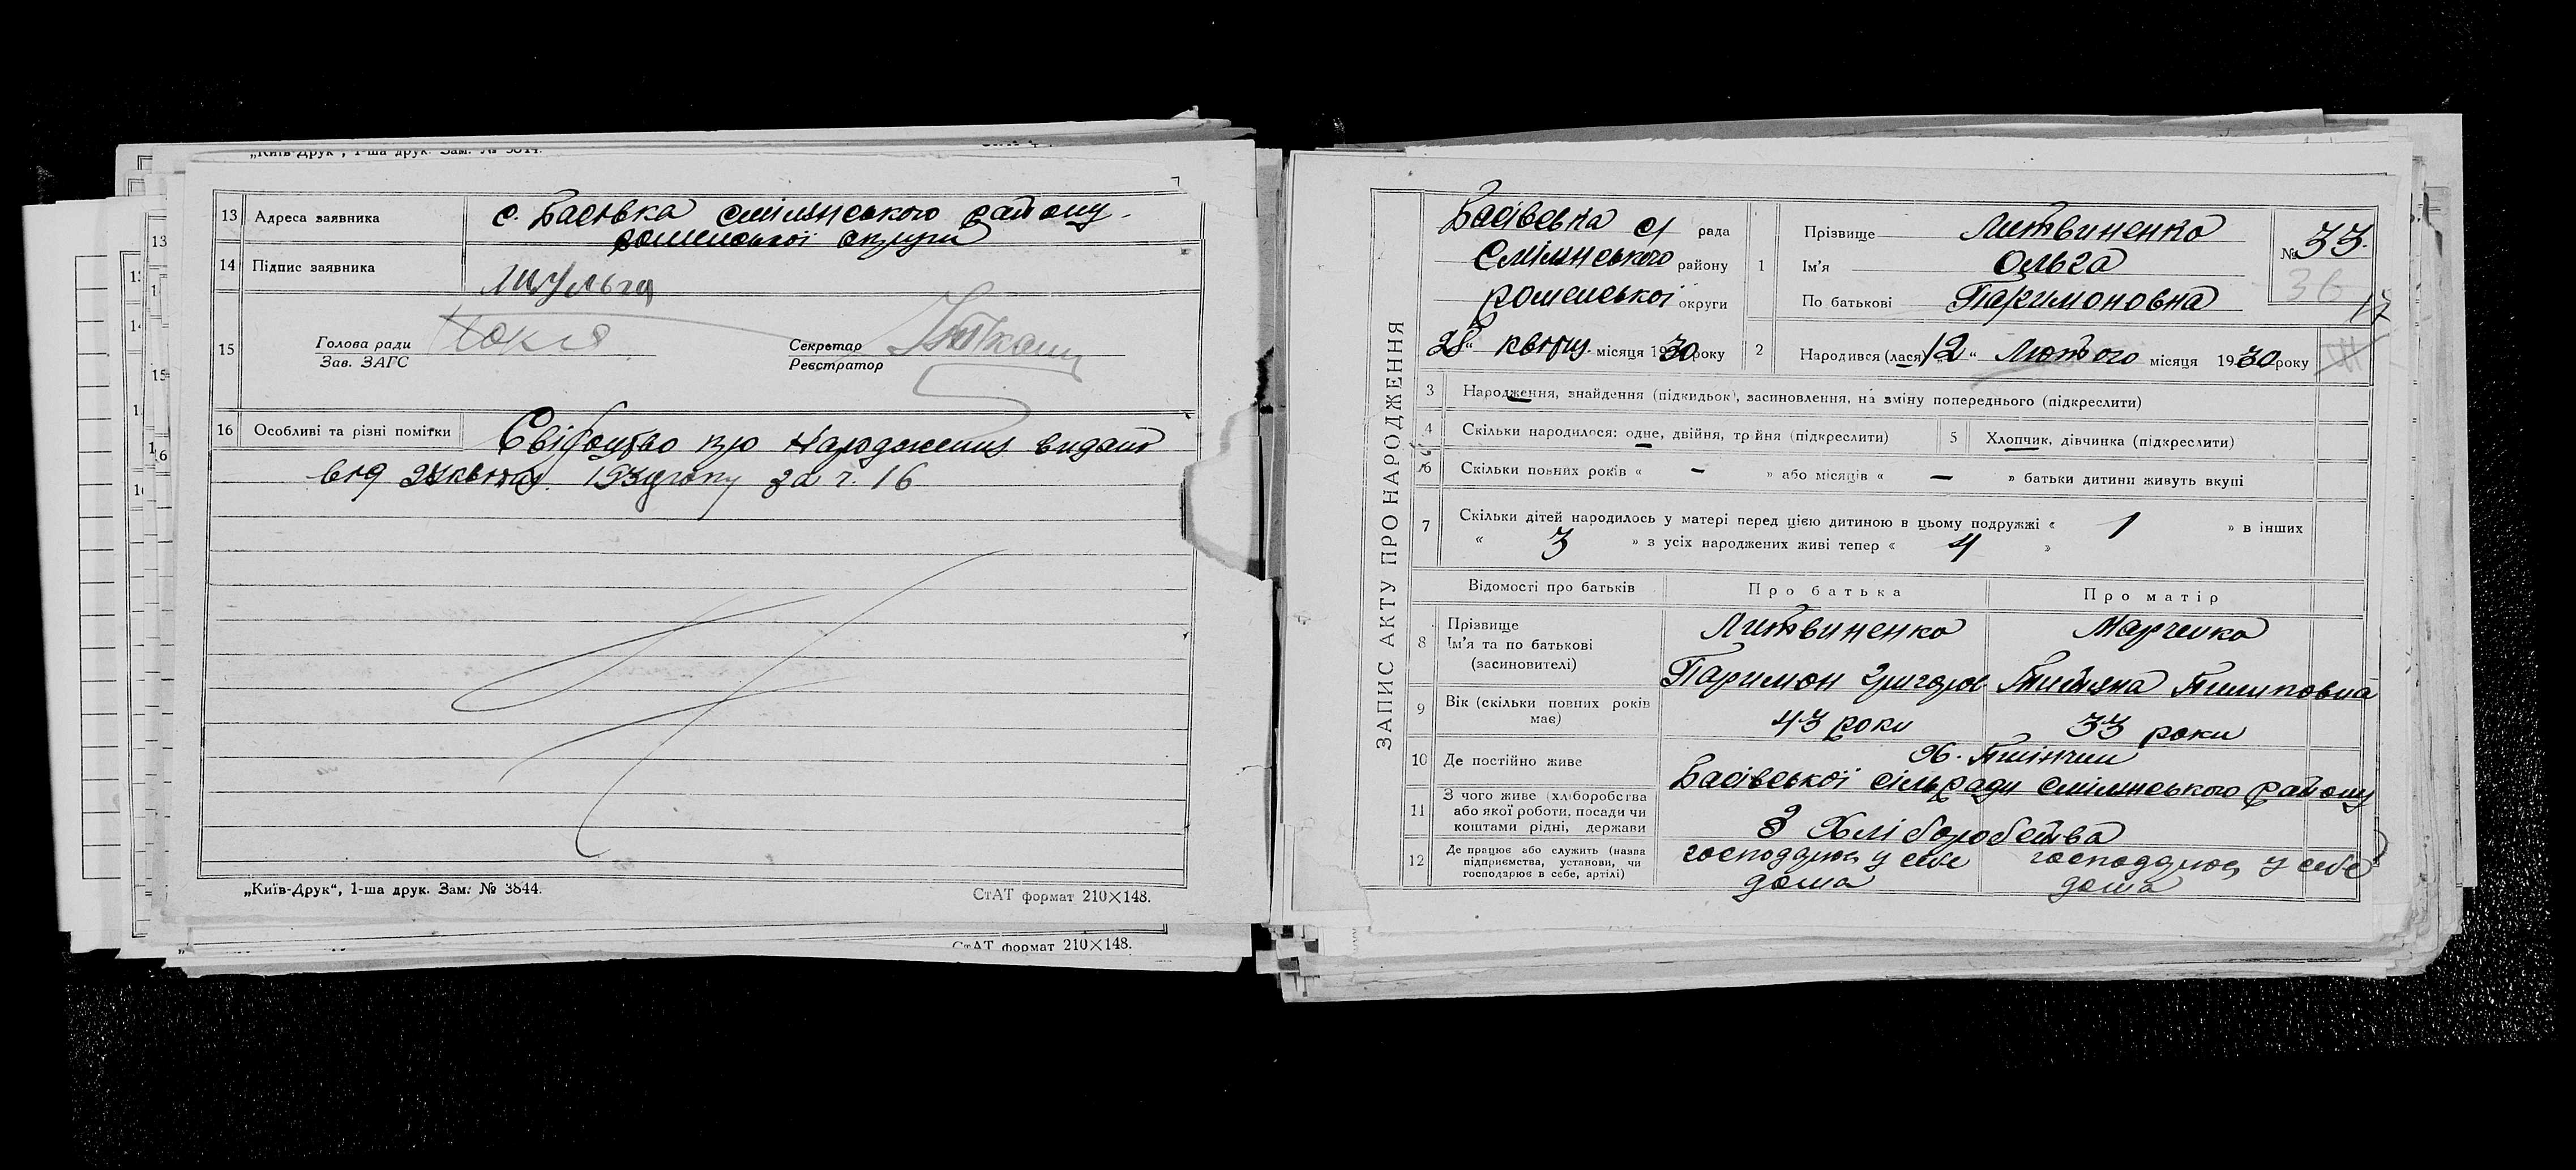 „Київ-Друк", 1-ша друк. Зам. № 3844.
13 Адреса заявника с. Басівка смілянського району
роменської округи
14 Підпис заявника Шульга
15 Голова ради
Зав. ЗАГС
Секретар
Реєстратор
16 Особливі та різні помітки Свідоцтво про народження видано
від 28 квітня 1930 року за ч. 16
„Київ-Друк", 1-ша друк. Зам. № 3844.
СтАТ формат 210×148.
СтАТ формат 210×148.
ЗАПИС АКТУ ПРО НАРОДЖЕННЯ
Басівська с/ рада
Смілянського району
роменської округи
28" квітня місяця 1930 року
1 Прізвище Литвиненко
Ім'я Ольга
По батькові Паримоновна
№ 33.
36
17
2 Народився (лася) „12" Лютого місяця 1930 року
3 Народження, знайдення (підкидьок), засиновлення, на зміну попереднього (підкреслити)
4 Скільки народилося: одне, двійня, трійня (підкреслити)
5 Хлопчик, дівчинка (підкреслити)
6 Скільки повних років « - » або місяців « - » батьки дитини живуть вкупі
7 Скільки дітей народилось у матері перед цією дитиною в цьому подружжі « 1 » в інших
« 3 » з усіх народжених живі тепер « 4 »
Відомості про батьків Про батька Про матір
8 Прізвище
Ім'я та по батькові
(засиновителі)
Литвиненко Марченко
Паримон Григоров Титяна Пилиповна
9 Вік (скільки повних років має) 43 роки 33 роки
10 Де постійно живе
Басівської сільради смілянського району
11 З чого живе (хліборобства
або якої роботи, посади чи
коштами рідні, держави
З Хліборобства
12 Де працює або служить (назва
підприємства, установи, чи
господарює в себе, артілі)
господарює у себе дома
господарює у себе дома